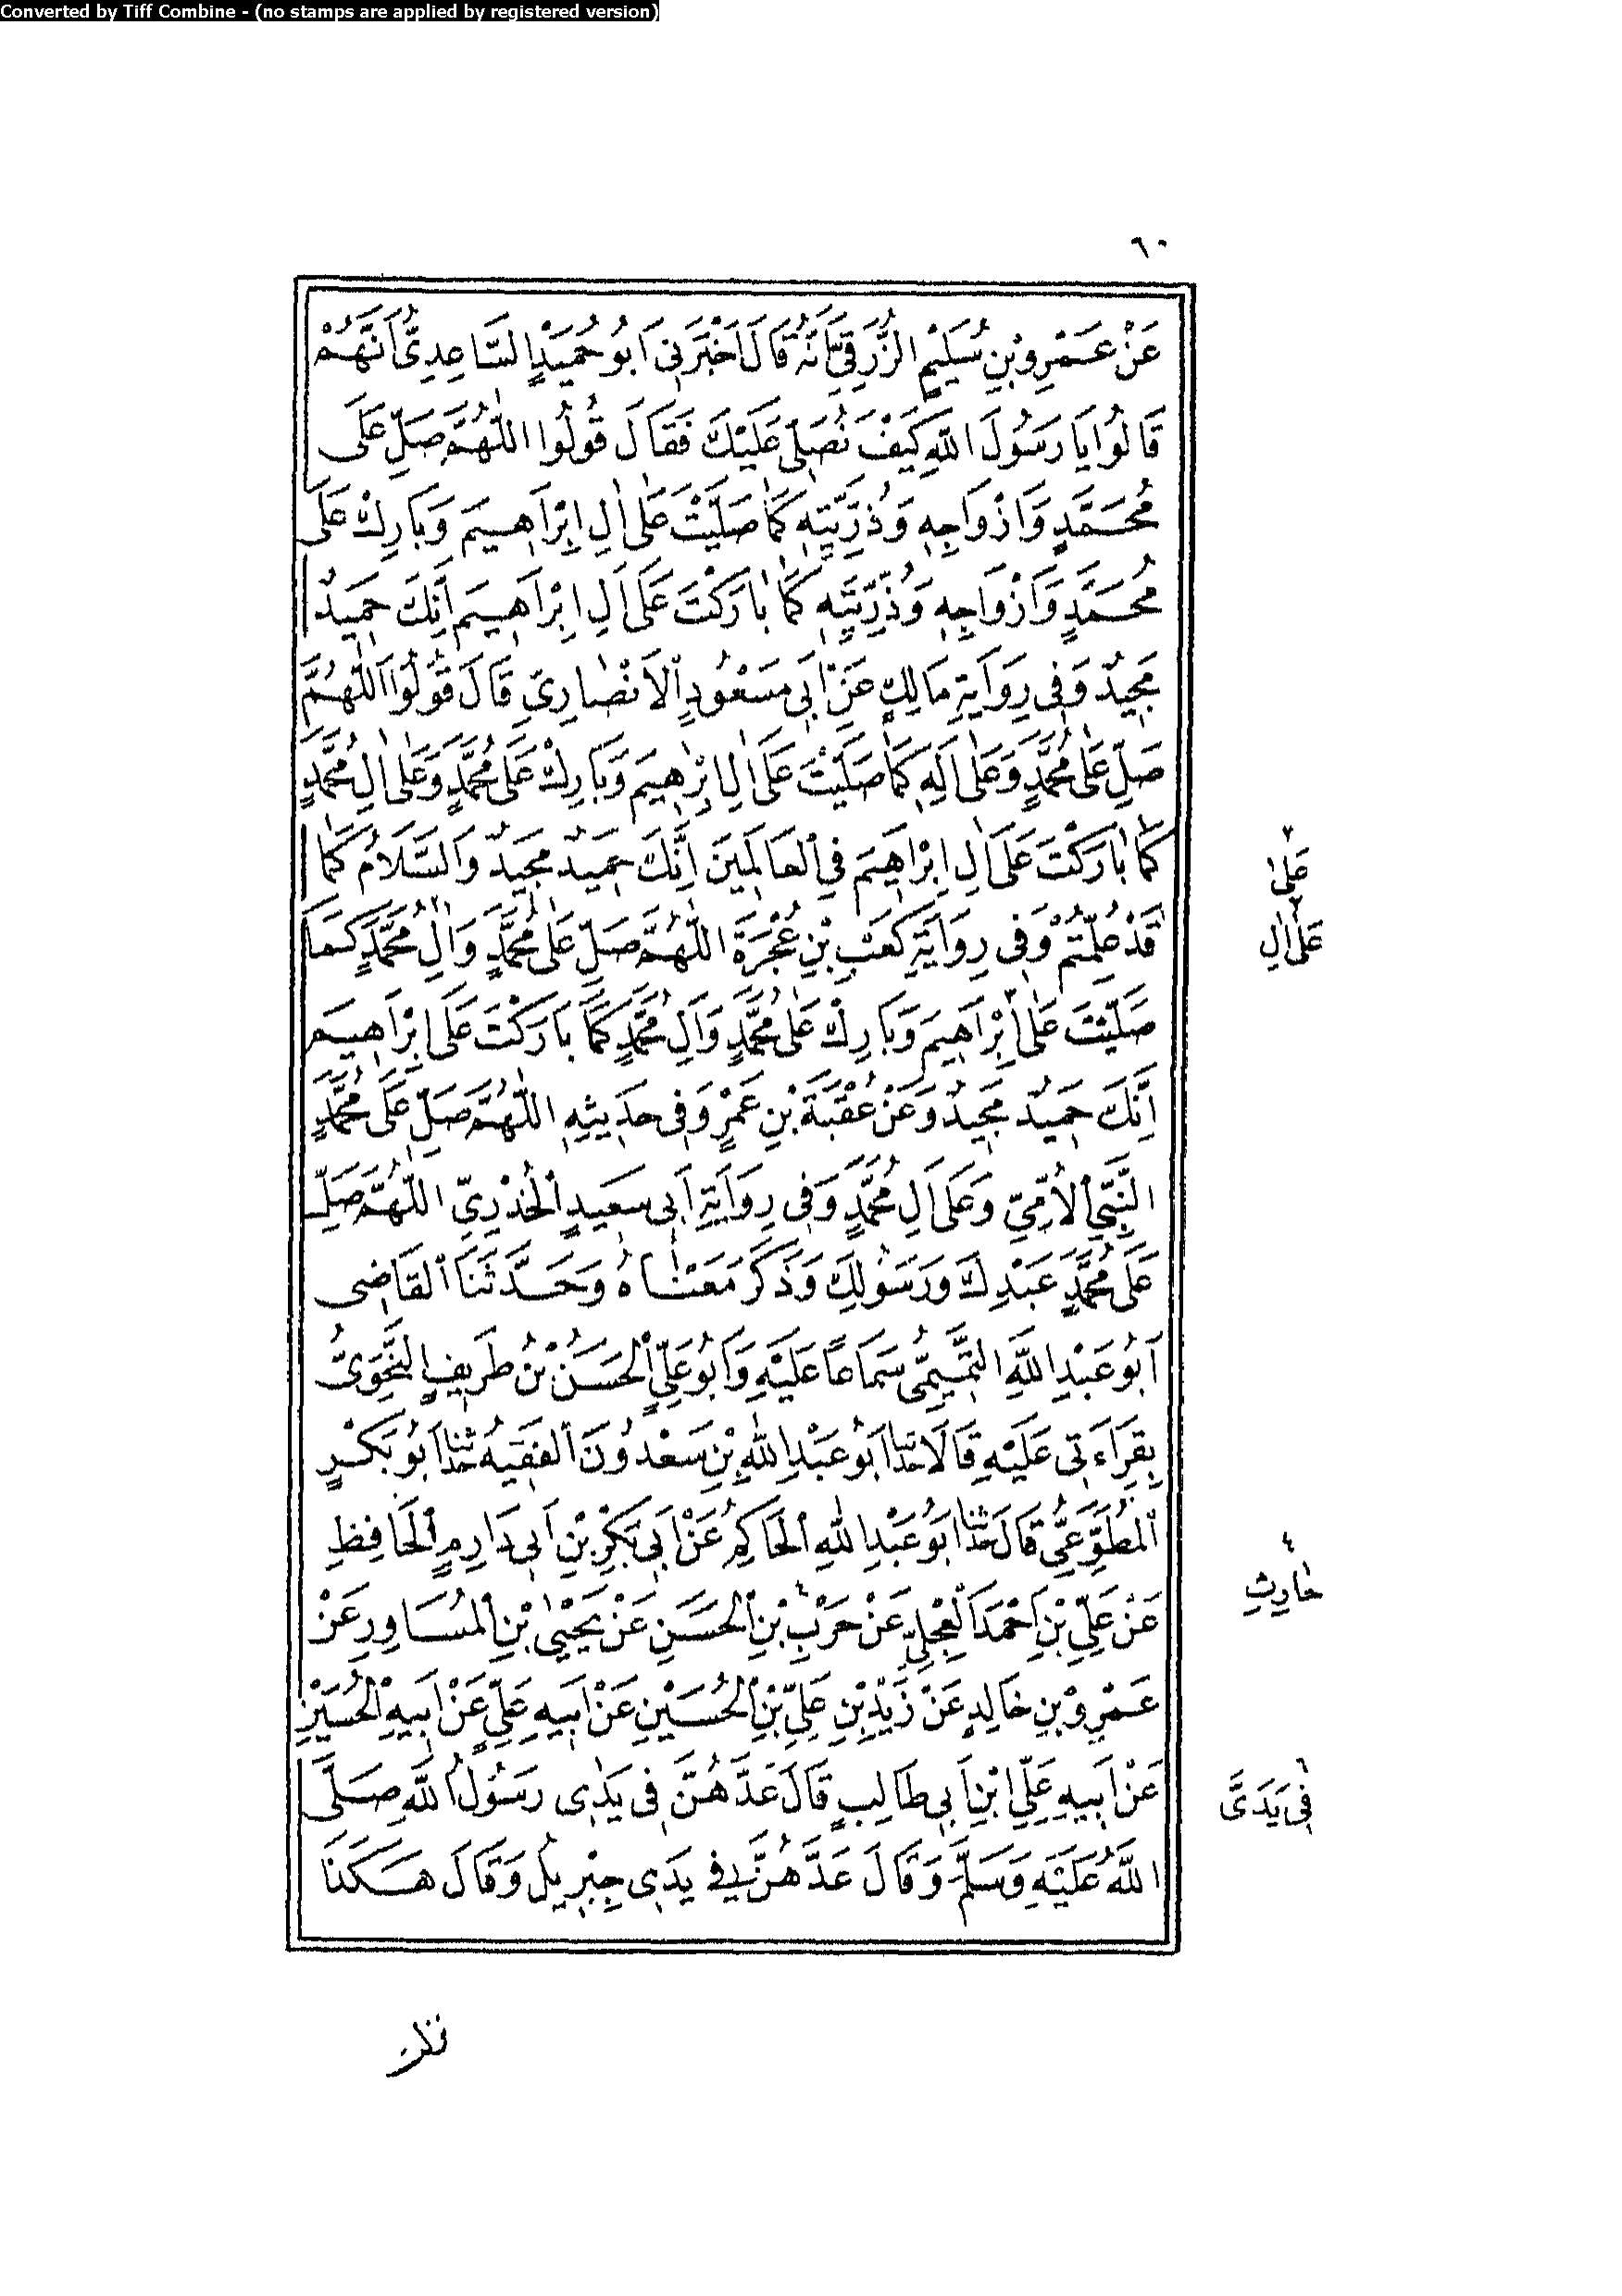 Converted by Tiff Combine - (no stamps are applied by registered version)
٦٠
عَنْ عَمْرِو بْنِ سُلَيْمٍ الزُّرَقِيِّ اَنَّهُ قَالَ اَخْبَرَنِي اَبُو حُمَيْدٍ السَّاعِدِيُّ اَنَّهُمْ
قَالُوا يَا رَسُولَ اللّٰهِ كَيْفَ نُصَلِّي عَلَيْكَ فَقَالَ قُولُوا اللّٰهُمَّ صَلِّ عَلَى
مُحَمَّدٍ وَاَزْوَاجِهِ وَذُرِّيَّتِهِ كَمَا صَلَّيْتَ عَلٰى اٰلِ اِبْرَاهِيمَ وَبَارِكْ عَلَى
مُحَمَّدٍ وَاَزْوَاجِهِ وَذُرِّيَّتِهِ كَمَا بَارَكْتَ عَلَى اٰلِ اِبْرَاهِيمَ اِنَّكَ حَمِيدٌ
مَجِيدٌ وَفِي رِوَايَةِ مَالِكٍ عَنْ اَبِي مَسْعُودٍ الْاَنْصَارِيِّ قَالَ قُولُوا اَللّٰهُمَّ
صَلِّ عَلٰى مُحَمَّدٍ وَعَلٰى اٰلِهِ كَمَا صَلَّيْتَ عَلَى اٰلِ اِبْرٰهِيمَ وَبَارِكْ عَلَى مُحَمَّدٍ وَعَلٰى اٰلِ مُحَمَّدٍ
كَمَا بَارَكْتَ عَلَى اٰلِ اِبْرَاهِيمَ فِي الْعَالَمِينَ اِنَّكَ حَمِيدٌ مَجِيدٌ وَالسَّلَامُ كَمَا
قَدْ عُلِّمْتُمْ وَفِي رِوَايَةِ كَعْبِ بْنِ عُجْرَةَ اللّٰهُمَّ صَلِّ عَلٰى مُحَمَّدٍ وَاٰلِ مُحَمَّدٍ كَمَا
صَلَّيْتَ عَلٰى اِبْرَاهِيمَ وَبَارِكْ عَلٰى مُحَمَّدٍ وَاٰلِ مُحَمَّدٍ كَمَا بَارَكْتَ عَلَى اِبْرَاهِيمَ
اِنَّكَ حَمِيدٌ مَجِيدٌ وَعَنْ عُقْبَةَ بْنِ عَمْرٍو فِي حَدِيثِهِ اللّٰهُمَّ صَلِّ عَلَى مُحَمَّدٍ
النَّبِيِّ الْاُمِّيِّ وَعَلَى اٰلِ مُحَمَّدٍ وَفِي رِوَايَةِ اَبِي سَعِيدٍ الْخُدْرِيِّ اللّٰهُمَّ صَلِّ
عَلَى مُحَمَّدٍ عَبْدِكَ وَرَسُولِكَ وَذَكَرَ مَعْنَاهُ وَحَدَّثَنَا الْقَاضِي
اَبُو عَبْدِ اللّٰهِ التَّمِيمِيُّ سَمَاعًا عَلَيْهِ وَاَبُو عَلِيٍّ الْحَسَنُ بْنُ طَرِيفٍ النَّحْوِيُّ
بِقِرَاءَتِي عَلَيْهِ قَالَا حَدَّثَنَا اَبُو عَبْدِ اللّٰهِ بْنِ سَعْدُونَ الْفَقِيهُ حَدَّثَنَا اَبُو بَكْرٍ
الْمُطَّوِّعِيُّ قَالَ حَدَّثَنَا اَبُو عَبْدِ اللّٰهِ الْحَاكِمُ عَنْ اَبِي بَكْرِ بْنِ اَبِي دَارِمٍ الْحَافِظِ
عَنْ عَلِيِّ بْنِ اَحْمَدَ الْعِجْلِيِّ عَنْ حَرْبِ بْنِ الْحَسَنِ عَنْ يَحْيٰى بْنِ الْمُسَاوِرِ عَنْ
عَمْرِو بْنِ خَالِدٍ عَنْ زَيْدِ بْنِ عَلِيِّ بْنِ الْحُسَيْنِ عَنْ اَبِيهِ عَلِيٍّ عَنْ اَبِيهِ الْحُسَيْنِ
عَنْ اَبِيهِ عَلِيِّ ابْنِ اَبِي طَالِبٍ قَالَ عَدَّهُنَّ فِي يَدِي رَسُولُ اللّٰهِ صَلَّى
اللّٰهُ عَلَيْهِ وَسَلَّمَ وَقَالَ عَدَّهُنَّ فِي يَدِي جِبْرِيلُ وَقَالَ هٰكَذَا
٢
عَلٰى
٢
عَلٰى اٰلِ
٤
حَارِثِ
٦
فِي يَدَيَّ
نزلت